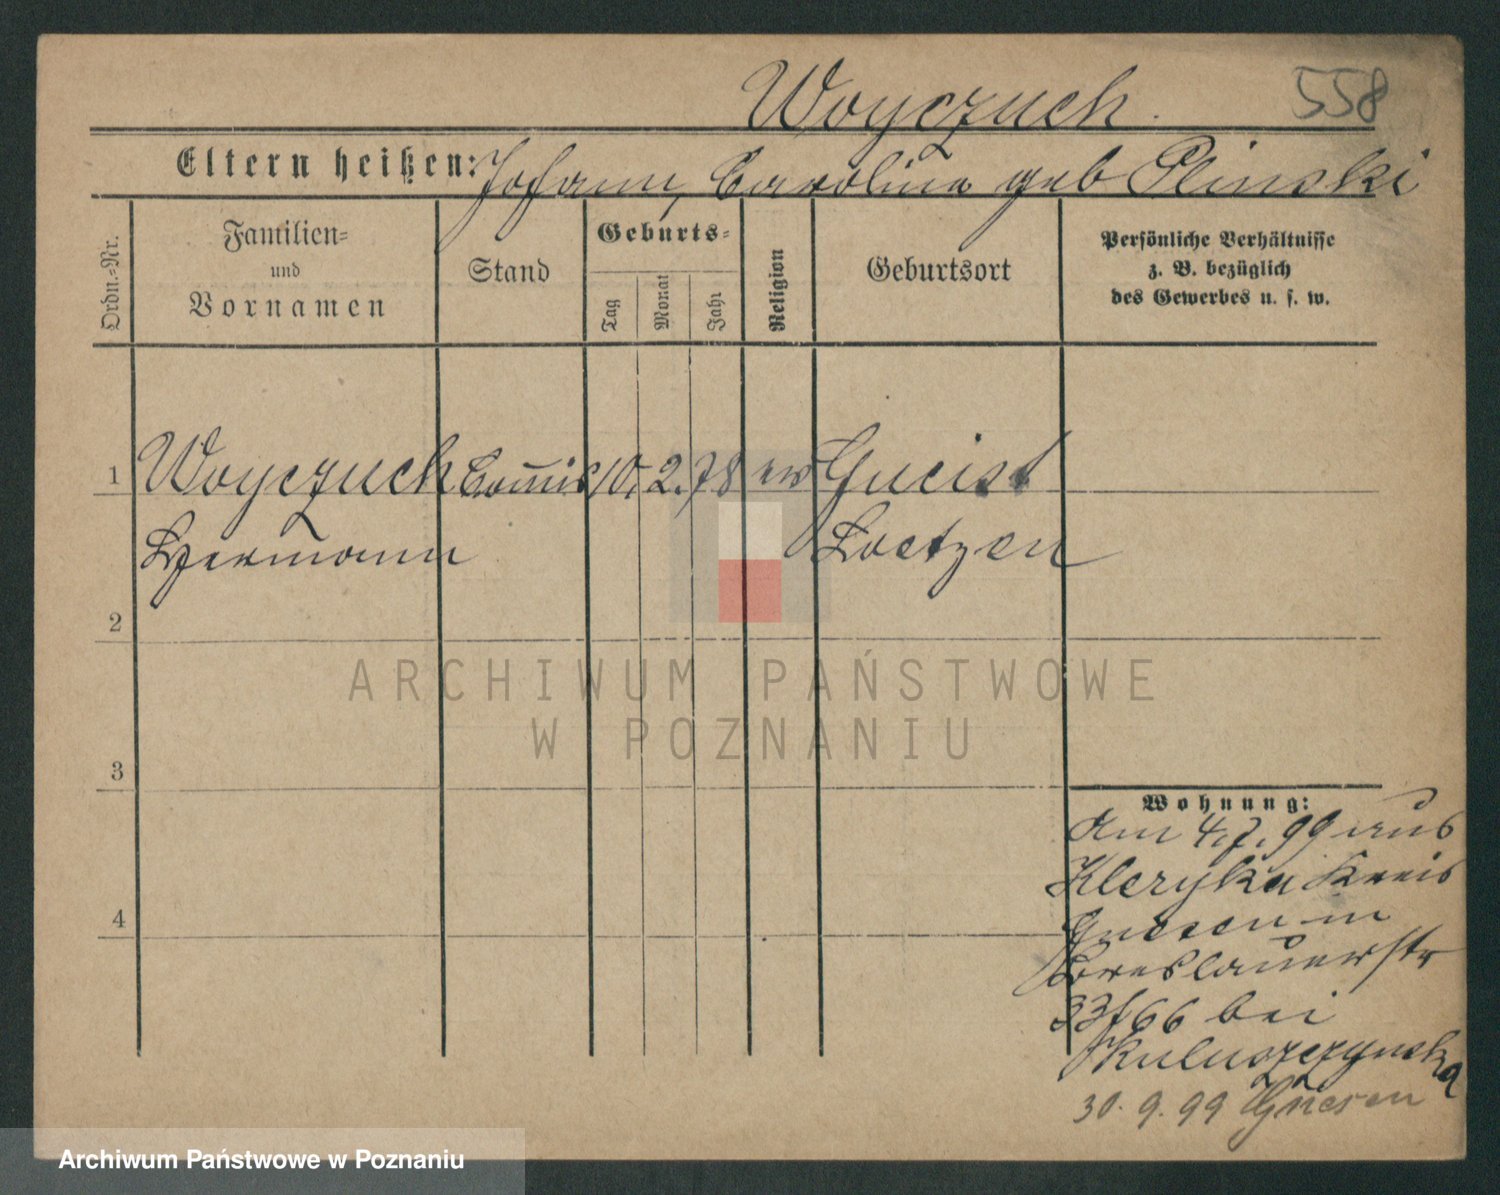 Woyczuch. 558
Eltern heißen: Johann, Carolina geb Plinski
Ordn.-Nr.
Familien-
und
Vornamen
Stand
Geburts-
Tag
Monat
Jahr
Religion
Geburtsort
Persönliche Verhältnisse
z. B. bezüglich
des Gewerbes u. s. w.
1 Woyczuch Com̄is 10. 2. 78 ev Gneist
Hermann Loetzen
2
3
4
Wohnung:
Am 4. 7. 99 aus
Kleryka Kreis
Gnesen in
Breslauerstr
33/66 bei
30. 9. 99 Gnesen
ARCHIWUM PAŃSTWOWE
W POZNANIU
Archiwum Państwowe w Poznaniu